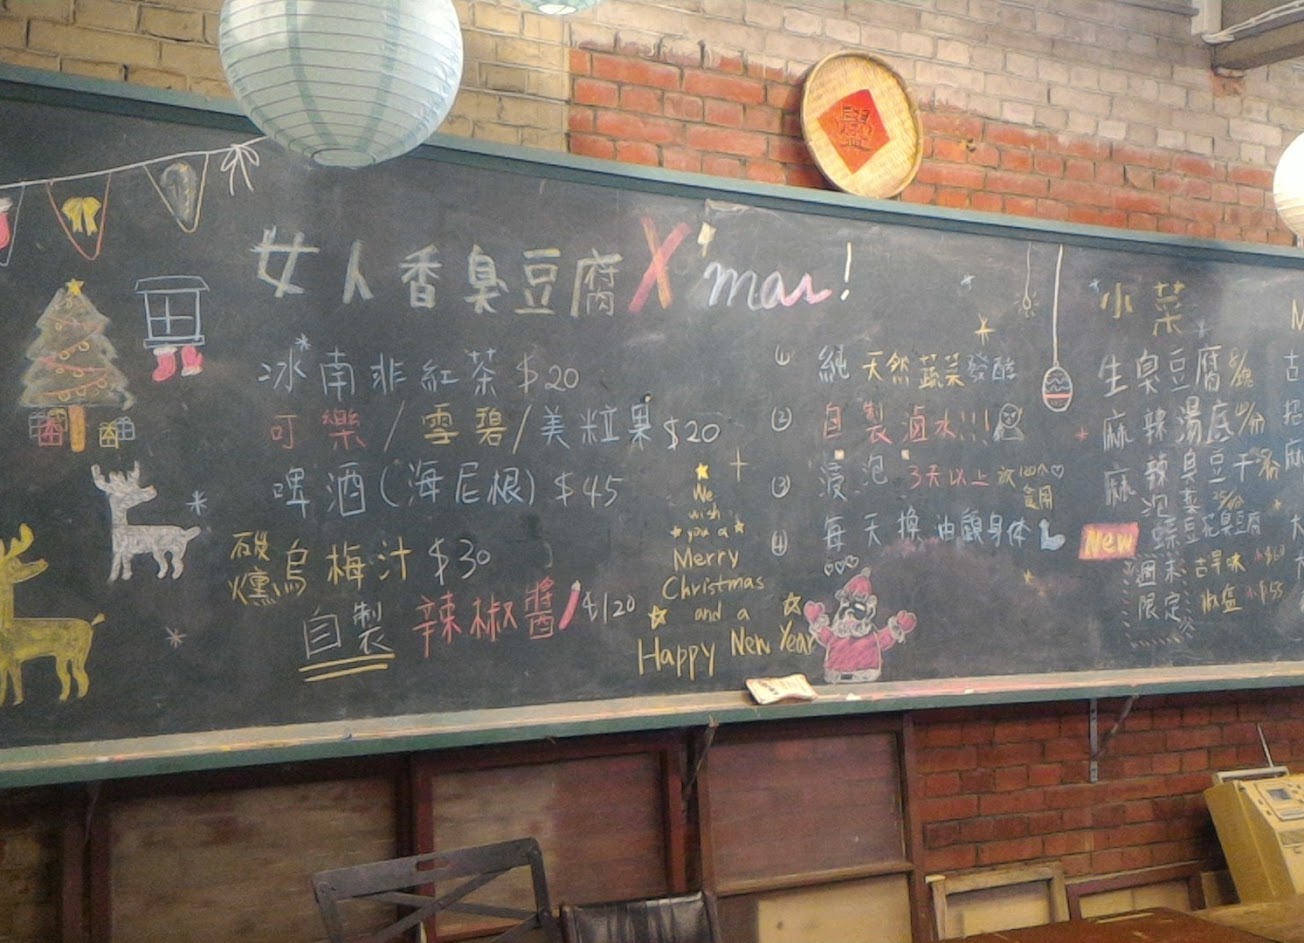 女人香臭豆腐X'mas!
冰南非紅茶$20
可樂/雪碧/美粒果$20
啤酒(海尼根)$45
炭燻烏梅汁$30
自製辣椒醬$120
We
wish
you a
Merry
Christmas
and a
Happy New Year
① 純天然蔬菜發酵
② 自製滷水!!!
③ 浸泡3天以上
④ 每天換油顧身体
小菜
生臭豆腐
麻辣湯底
麻辣臭豆干
泡菜
New
週末限定
古早味 $60
椒盐 $55